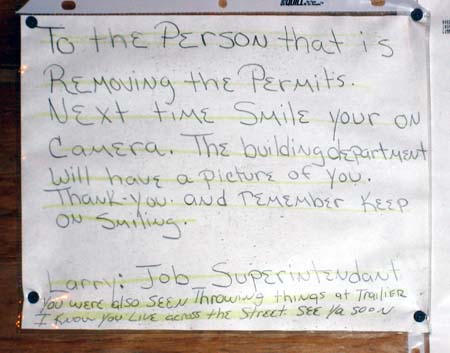 QUILL
To the Person that is
Removing the Permits.
Next time Smile your on
Camera. The building department
Will have a picture of you.
Thank-you. and remember Keep
on Smiling.
Larry: Job Superintendant
You were also seen Throwing things at Trailier
I know you Live across the Street. See ya soon